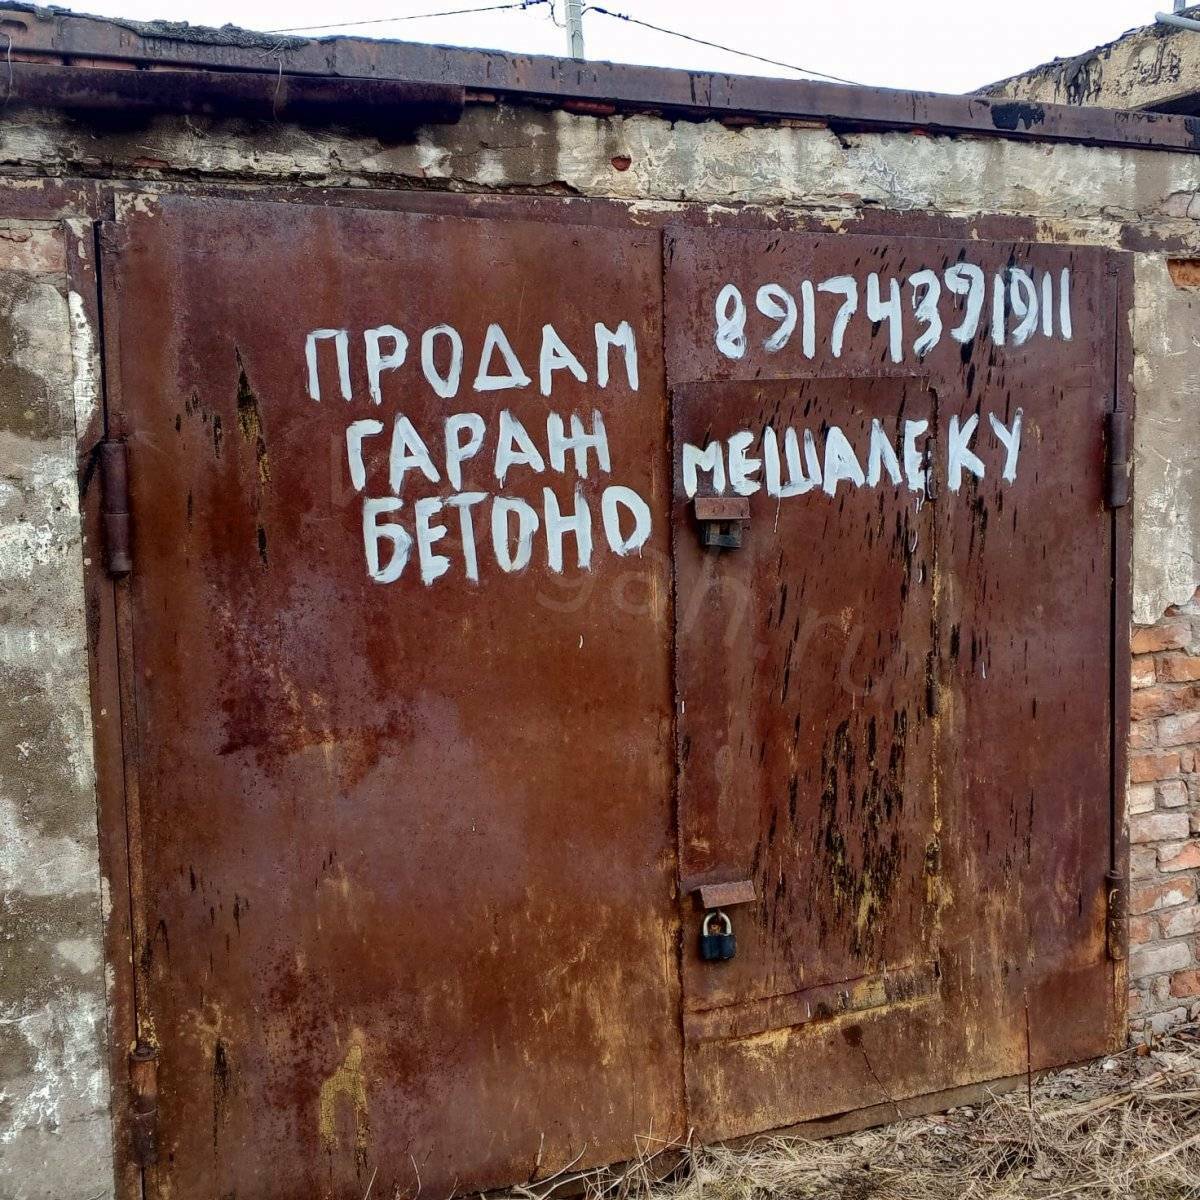 ПРОДАМ
ГАРАЖ
БЕТОНО
89174391911
МЕШАЛЕКУ